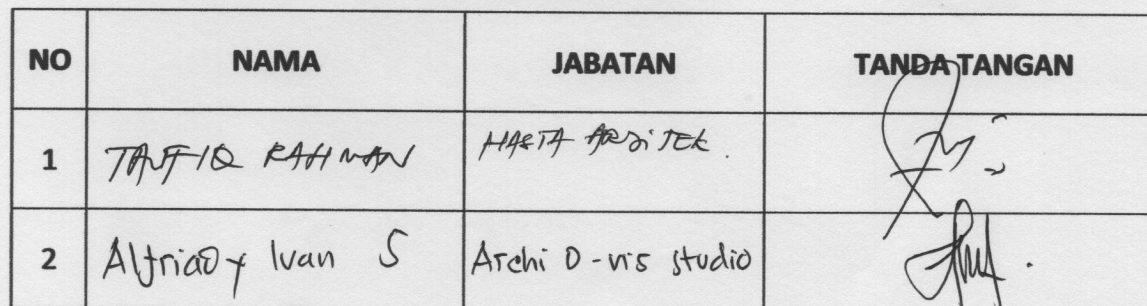 NO NAMA JABATAN TANDA TANGAN
1 TAUFIQ RAHMAN HASTA ARSiTEK.
2 Ivan S Archi D-vis studio